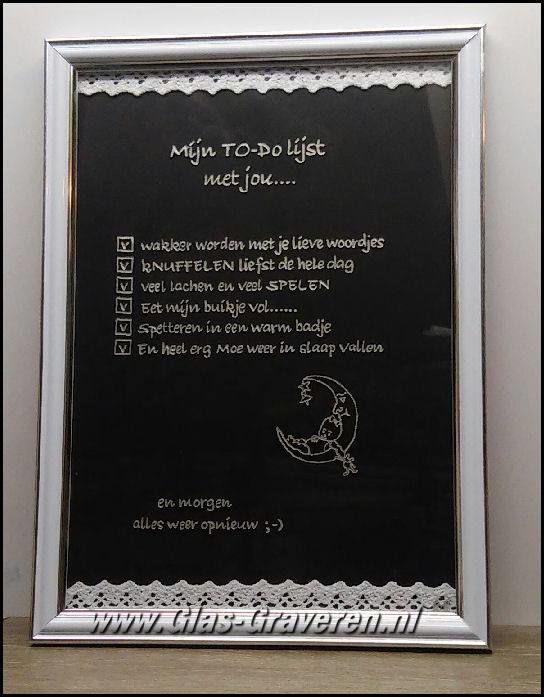 Mijn TO-Do lijst
met jou....
v wakker worden met je lieve woordjes
v KNUFFELEN liefst de hele dag
v veel lachen en veel SPELEN
v Eet mijn buikje vol......
v Spetteren in een warm badje
v En heel erg Moe weer in slaap vallen
en morgen
alles weer opnieuw ;-)
www.Glas-Graveren.nl